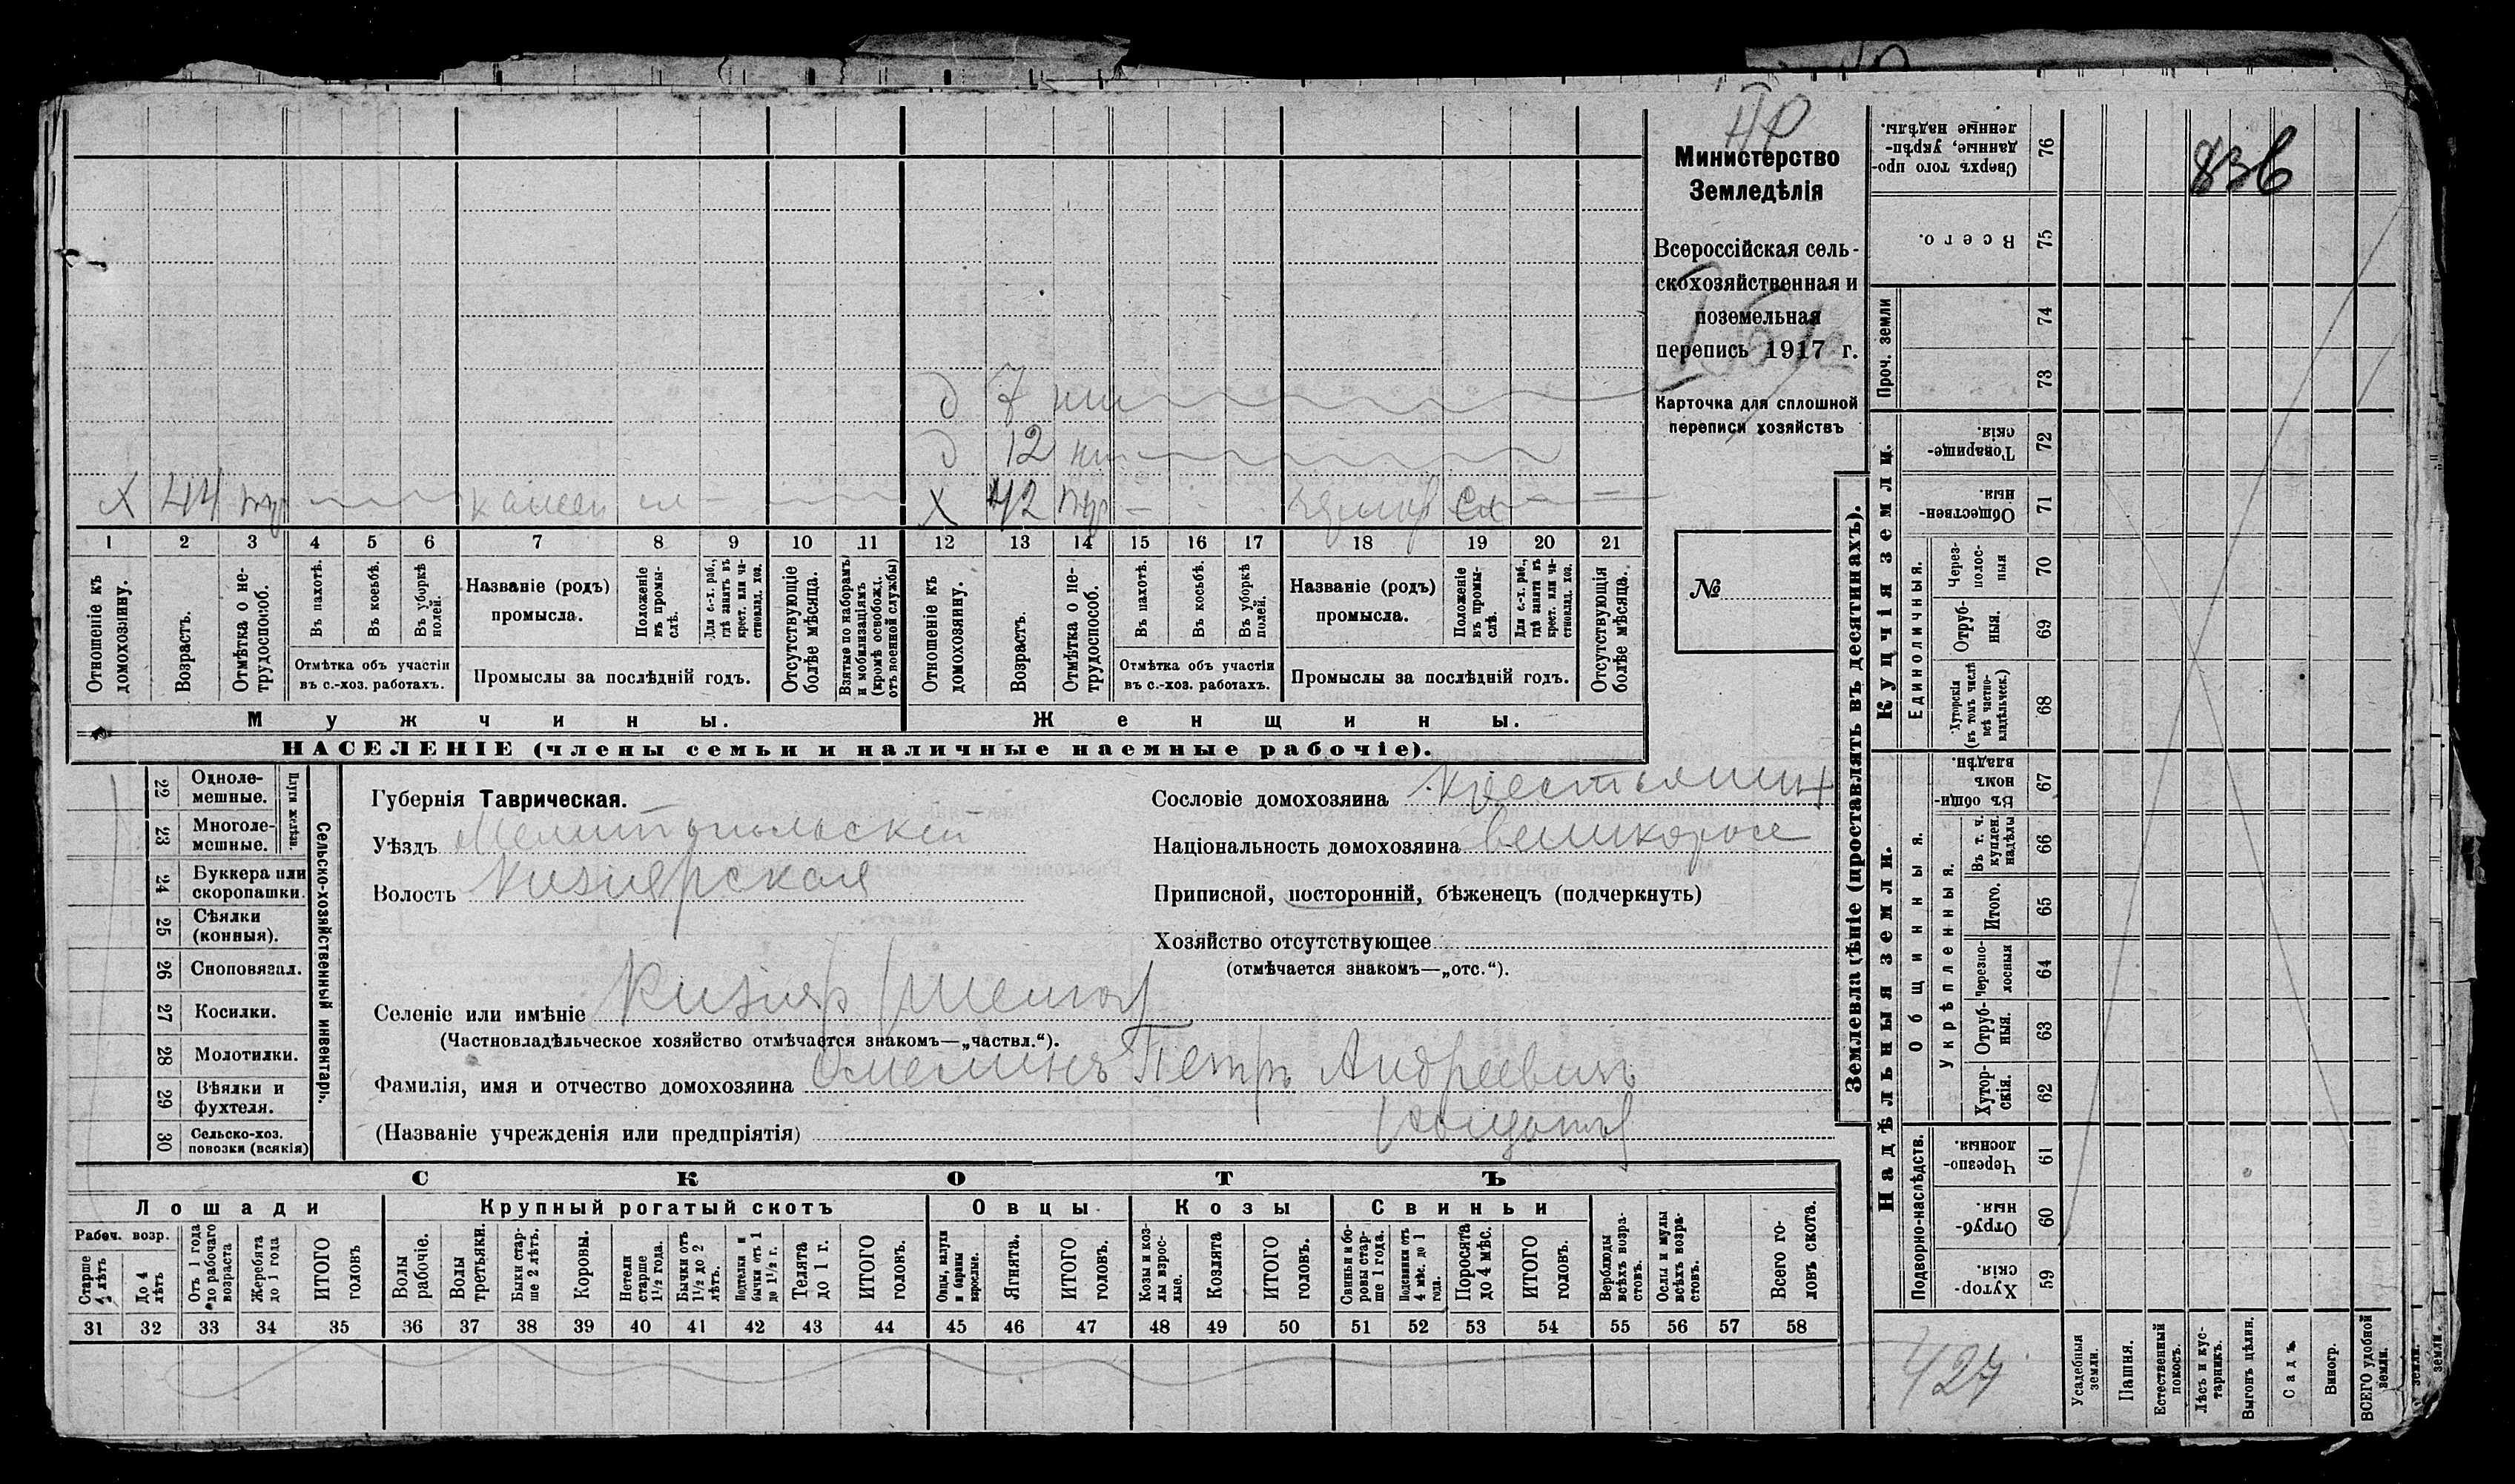 836
Министерство
Земледѣлія
Всероссійская сель-
скохозяйственная и
поземельная
перепись 1917 г.
Карточка для сплошной
переписи хозяйствъ
№
д 7 нт
д 12 нт
х 44 тр
х 42 тр
1 2 3 4 5 6 7 8 9 10 11 12 13 14 15 16 17 18 19 20 21
Отношеніе къ домохозяину.
Возрастъ.
Отмѣтка о не-трудоспособ.
Въ пахотѣ.
Въ косьбѣ.
Въ уборкѣ полей.
Отмѣтка объ участіи
въ с.-хоз. работахъ.
Названіе (родъ)
промысла.
Положеніе въ промы-слѣ.
Для с.-х. раб., гдѣ занятъ въ крест. или ча-стновлад. хоз.
Промыслы за послѣдній годъ.
Отсутствующіе болѣе мѣсяца.
Взятые по наборамъ и мобилизаціямъ (кромѣ освобожд. отъ военной службы)
Отношеніе къ домохозяину.
Возрастъ.
Отмѣтка о не-трудоспособ.
Въ пахотѣ.
Въ косьбѣ.
Въ уборкѣ полей.
Отмѣтка объ участіи
въ с.-хоз. работахъ.
Названіе (родъ)
промысла.
Положеніе въ промы-слѣ.
Для с.-х. раб., гдѣ занята въ крест. или ча-стновлад. хоз.
Промыслы за послѣдній годъ.
Отсутствующія болѣе мѣсяца.
Мужчины.
Женщины.
НАСЕЛЕНІЕ (члены семьи и наличные наемные рабочіе).
22 Одноле-мешные.
23 Многоле-мешные.
Плуги желѣзн.
24 Буккера или скоропашки.
25 Сѣялки (конныя).
26 Сноповязал.
27 Косилки.
28 Молотилки.
29 Вѣялки и фухтеля.
30 Сельско-хоз. повозки (всякія)
Сельско-хозяйственный инвентарь.
Губернія Таврическая.
Уѣздъ Мелитопольскій
Волость Кизіярская
Селеніе или имѣніе Кизіяр
(Частновладѣльческое хозяйство отмѣчается знакомъ—„частвл.“).
Фамилія, имя и отчество домохозяина Омелинъ Петръ Андреевичъ
(Названіе учрежденія или предпріятія)
Сословіе домохозяина крестьянин
Національность домохозяина великоросс
Приписной, посторонній, бѣженецъ (подчеркнуть)
Хозяйство отсутствующее
(отмѣчается знакомъ—„отс.“).
СКОТЪ
Лошади
Крупный рогатый скотъ
Овцы
Козы
Свиньи
Рабоч. возр.
Старше 4 лѣтъ
До 4 лѣтъ
Отъ 1 года до рабочаго возраста
Жеребята до 1 года
ИТОГО головъ
Волы рабочіе.
Волы третьяки.
Быки стар-ше 2 лѣтъ.
Коровы.
Нетели старше 1½ года.
Бычки отъ 1½ до 2 лѣтъ.
Подтелки и бычки отъ 1 до 1½ г.
Телята до 1 г.
ИТОГО головъ.
Овцы, валухи и бараны взрослые.
Ягнята.
ИТОГО головъ.
Козы и коз-лы взрос-лые.
Козлята
ИТОГО головъ.
Свиньи и бо-ровы стар-ше 1 года.
Подсвинки отъ 4 мѣс. до 1 года.
Поросята до 4 мѣс.
ИТОГО головъ.
Верблюды всѣхъ возра-стовъ.
Ослы и мулы всѣхъ возра-стовъ.
Всего го-ловъ скота.
31 32 33 34 35 36 37 38 39 40 41 42 43 44 45 46 47 48 49 50 51 52 53 54 55 56 57 58
Землевладѣніе (проставлять въ десятинахъ).
Купчія земли.
Надѣльныя земли.
Проч. земли
Единоличныя.
Общинныя.
Укрѣпленныя.
Подворно-наслѣдств.
76 Сверхъ того про-данные, укрѣп-ленные надѣлы.
75 Всего.
74
73
72 Товарище-скія.
71 Обществен-ныя.
70 Через-полос-ныя
69 Отруб-ныя.
68 Хуторскія (въ томъ числѣ всѣ частно-владѣльческ.)
67 Въ общин-номъ владѣн.
66 Въ т. ч. куплен. надѣлы
65 Итого.
64 Черезпо-лосныя
63 Отруб-ныя.
62 Хутор-скія.
61 Черезпо-лосныя
60 Отруб-ныя
59 Хутор-скія.
427
Усадебныя земли.
Пашня.
Естественный покосъ.
Лѣсъ и кус-тарникъ.
Выгонъ цѣлин.
Садъ
Виногр.
ВСЕГО удобной земли.